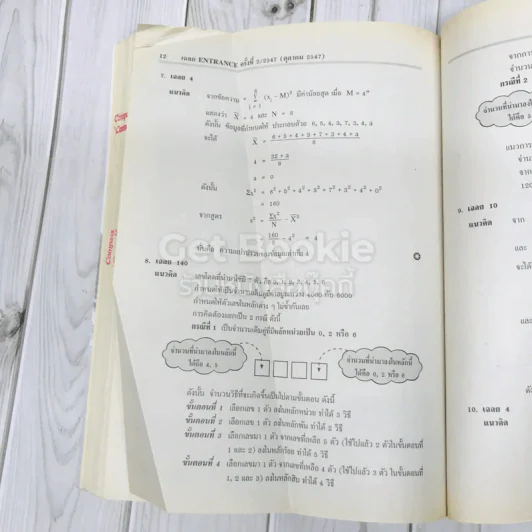 12 เฉลย ENTRANCE ครั้งที่ 2/2547 (ตุลาคม 2547)
7. เฉลย 4
แนวคิด จากข้อความ = Σ (xᵢ - M)² มีค่าน้อยสุด เมื่อ M = 4"
i = 1
แสดงว่า X̄ = 4 และ N = 8
ดังนั้น ข้อมูลที่กำหนดให้ ประกอบด้วย 6, 5, 4, 3, 7, 3, 4, a
จะได้ X̄ = 6 + 5 + 4 + 3 + 7 + 3 + 4 + a
8
4 = 32 + a
8
a = 0
ดังนั้น Σxᵢ² = 6² + 5² + 4² + 3² + 7² + 3² + 4² + 0²
= 160
จากสูตร s² = Σxᵢ² / N - X̄²
160 - 4² = 4
นั่นคือ ความแปรปรวนของข้อมูลเท่ากับ 4
Get Bookie
8. เฉลย 140
แนวคิด เลขโดดที่นำมาใช้มี
กำหนดให้เป็นจำนวนเต็มคู่ที่อยู่ระหว่าง 4000 กับ 6000
กำหนดให้ตัวเลขในหลักต่าง ๆ ไม่ซ้ำกันเลย
การคิดต้องแยกเป็น 2 กรณี ดังนี้
กรณีที่ 1 เป็นจำนวนเต็มคู่ที่มีหลักหน่วยเป็น 0, 2 หรือ 6
จำนวนที่นำมาลงในหลักนี้
ได้คือ 4, 5
จำนวนที่นำมาลงในหลักนี้
ได้คือ 0, 2 หรือ 6
ดังนั้น จำนวนวิธีที่จะเกิดขึ้นเป็นไปตามขั้นตอน ดังนี้
ขั้นตอนที่ 1 เลือกเลข 1 ตัว ลงในหลักหน่วย ทำได้ 3 วิธี
ขั้นตอนที่ 2 เลือกเลข 1 ตัว ลงในหลักพัน ทำได้ 2 วิธี
ขั้นตอนที่ 3 เลือกเลขมา 1 ตัว จากเลขที่เหลือ 5 ตัว (ใช้ไปแล้ว 2 ตัวในขั้นตอนที่
1 และ 2) ลงในหลักร้อย ทำได้ 5 วิธี
ขั้นตอนที่ 4 เลือกเลขมา 1 ตัว จากเลขที่เหลือ 4 ตัว (ใช้ไปแล้ว 3 ตัว ในขั้นตอนที่
1, 2 และ 3) ลงในหลักสิบ ทำได้ 4 วิธี
จากการ
จำนวน
กรณีที่ 2
จำนวนที่นำมา
ได้คือ 5
แนวการ
จำนวน
จาก
120
9. เฉลย 10
แนวคิด จาก
และ
จะได้
และ
10. เฉลย 4
แนวคิด